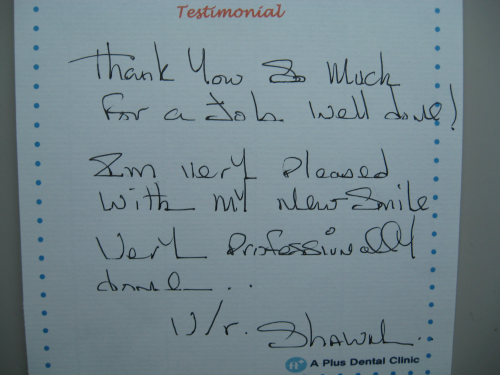 Testimonial
Thank You So Much
For a Job Well done!
I'm very Pleased
With my New Smile
Very Professionally
done...
V/r. Shawn..
A Plus Dental Clinic